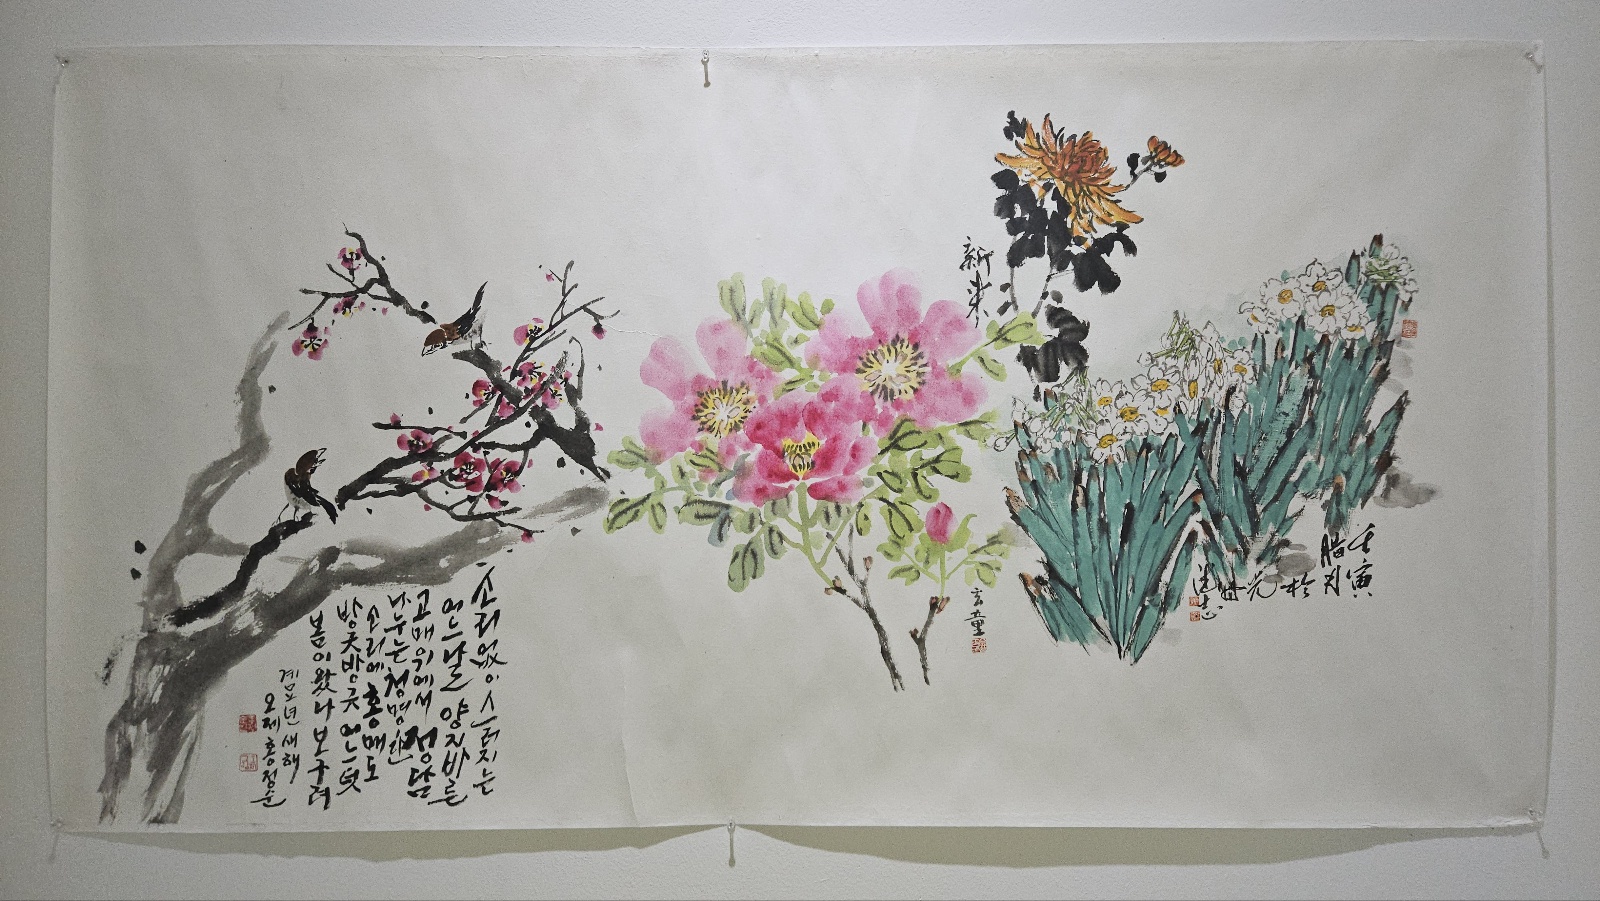 소리 없이 스러지는
어느 날 양지바른
고매 위에서 정담
나누는 청명한
소리에 홍매도
방긋방긋 어느덧
봄이 왔나 보구려
계묘년 새해
오제 홍정순
玄童
壬寅
腊月
於
光